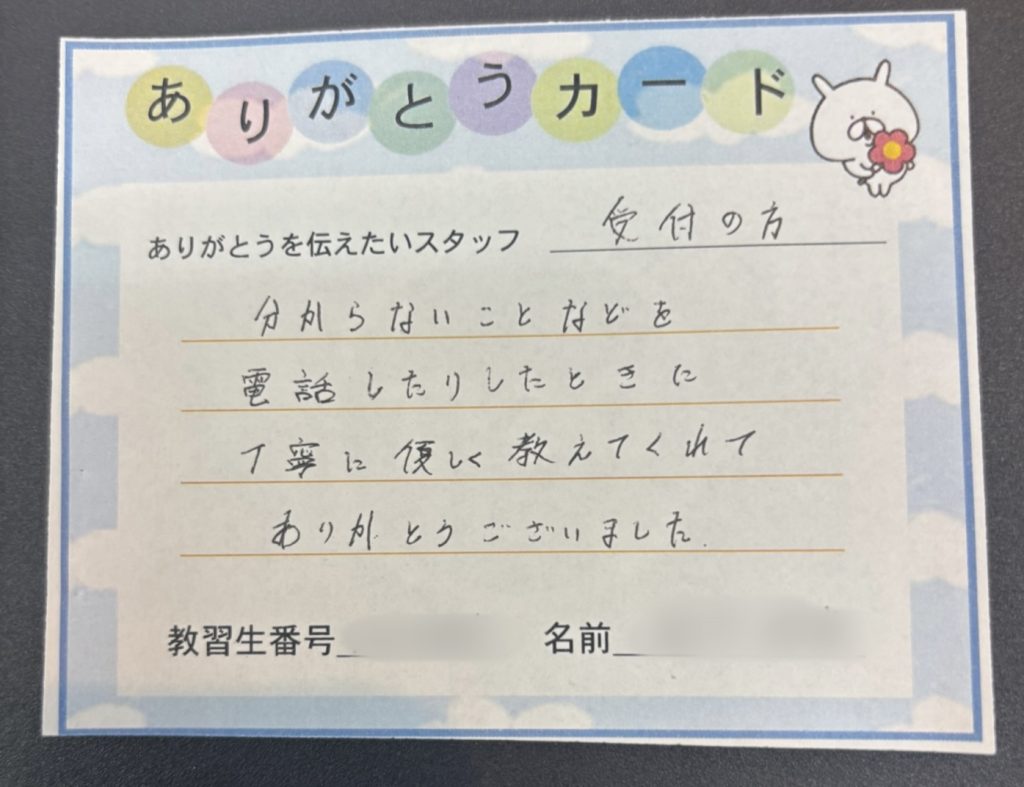 ありがとうカード
ありがとうを伝えたいスタッフ 受付の方
分からないことなどを
電話したりしたときに
丁寧に優しく教えてくれて
ありがとうございました.
教習生番号 名前